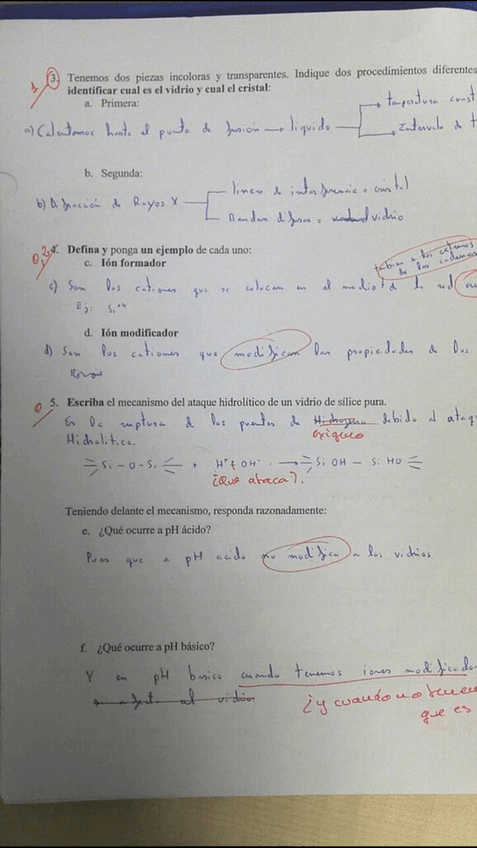 1 3. Tenemos dos piezas incoloras y transparentes. Indique dos procedimientos diferentes
identificar cual es el vidrio y cual el cristal:
a. Primera:
temperatura const
a) Calentamos hasta el punto de fusión → líquido
Intervalo de t
b. Segunda:
lineas de interferencia o cristal
b) Difracción de Rayos X
Bandas difusas o vidrio
4. Defina y ponga un ejemplo de cada uno:
c. Ión formador
de las cadenas
c) Son los cationes que se colocan en el medio de la red
Ej: Si4+
d. Ión modificador
d) Son los cationes que modifican las propiedades de los
0 5. Escriba el mecanismo del ataque hidrolítico de un vidrio de sílice pura.
Es la ruptura de los puentes de Hidrogeno debido al ataq
oxigeno
Hidrolítico.
Si - O - Si + H+ + OH- → Si OH - Si HO
¿Que ataca?
Teniendo delante el mecanismo, responda razonadamente:
e. ¿Qué ocurre a pH ácido?
Pues que a pH acido no modifica a los vidrios
f. ¿Qué ocurre a pH básico?
Y en pH basico cuando tenemos iones modificado
al vidrio
¿y cuando no tenem
que es